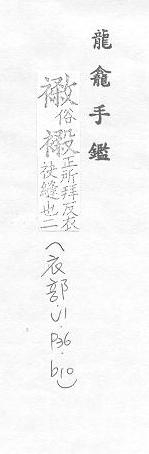 龍龕手鑑
俗正所拜反衣衩縫也二
(衣部.v1.p36.b10)